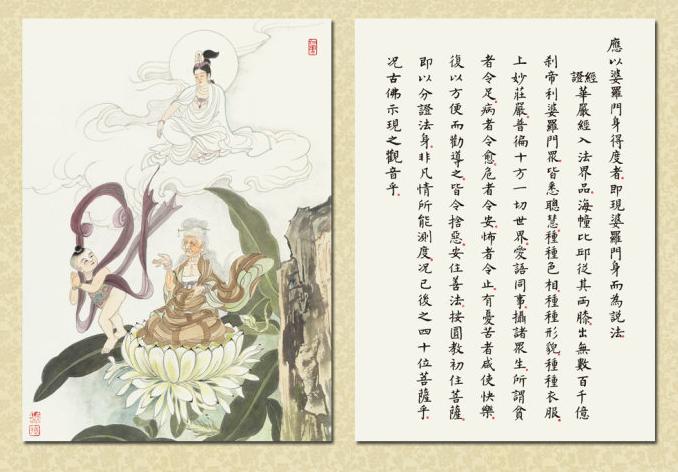 應以婆羅門身得度者。即現婆羅門身而為說法。
經證
華嚴經入法界品。海幢比邱從其兩膝。出無數百千億
刹帝利婆羅門眾。皆悉聰慧。種種色相。種種形貌。種種衣服。
上妙莊嚴。普徧十方一切世界。愛語同事。攝諸眾生。所謂貧
者令足。病者令愈。危者令安。怖者令止。有憂苦者咸使快樂。
復以方便而勸導之。皆令捨惡。安住善法。按圓教初住菩薩。
即以分證法身。非凡情所能測度。况已後之四十位菩薩乎。
况古佛示現之觀音乎。